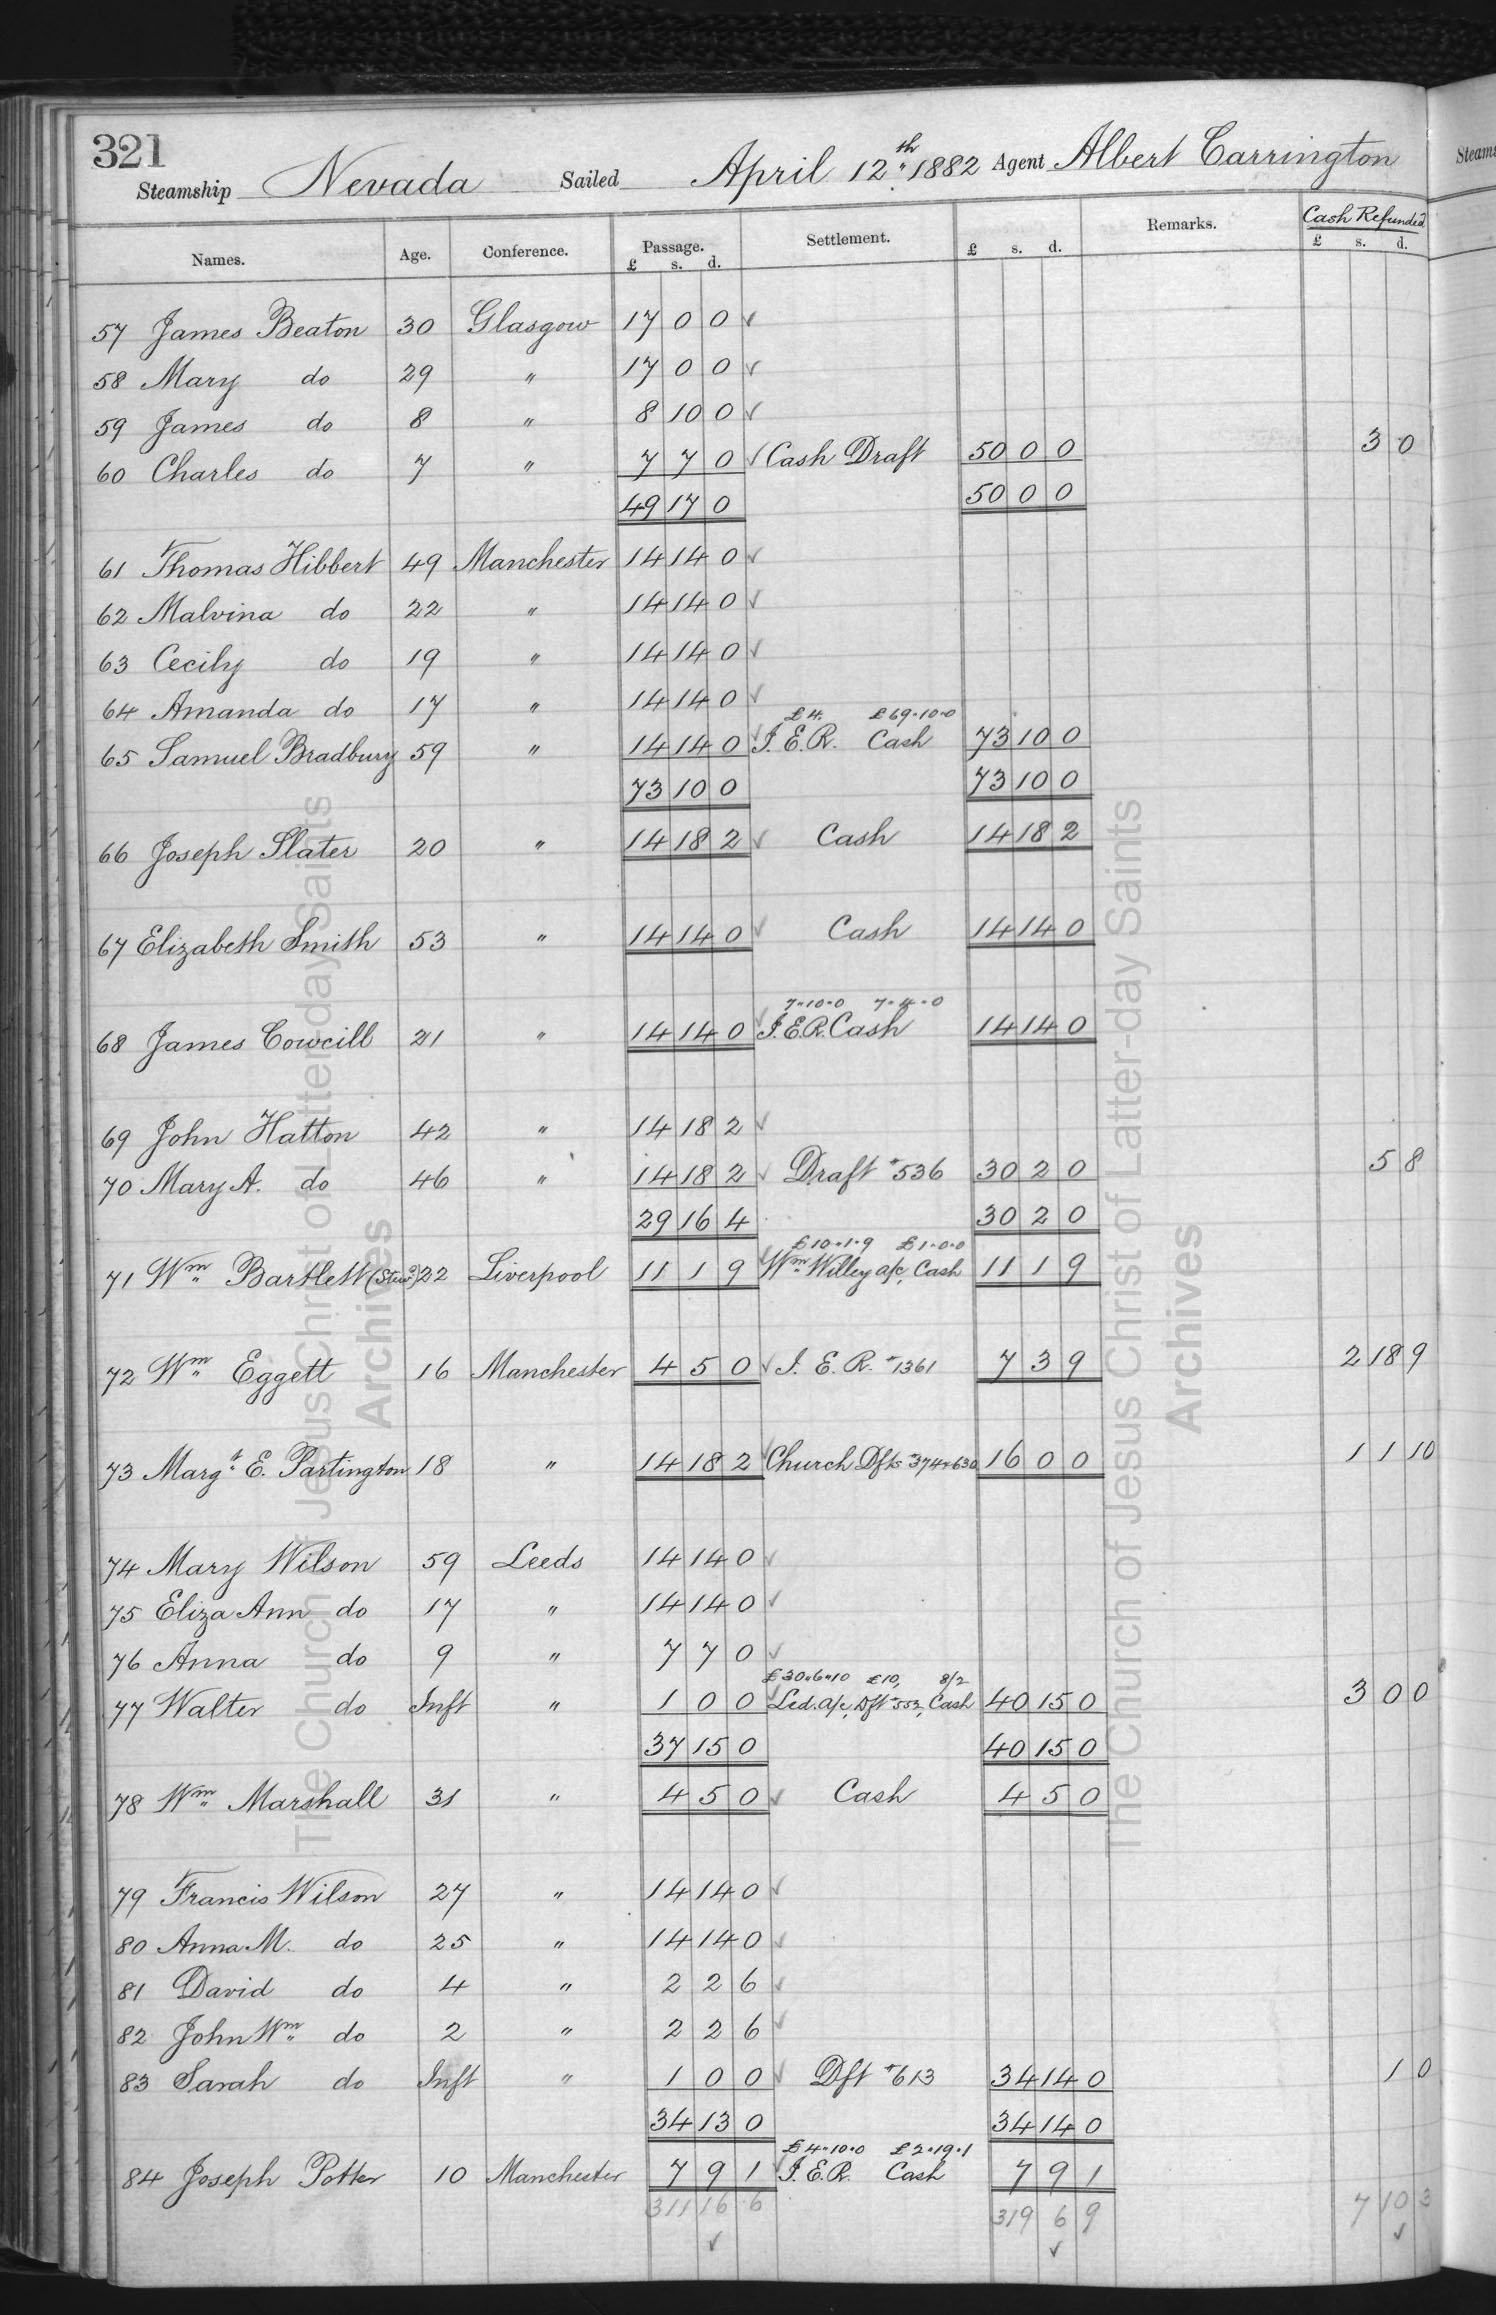 321
Steamship Nevada Sailed April 12th 1882 Agent Albert Carrington
Steams
Names. Age. Conference. Passage. £ s. d. Settlement. £ s. d. Remarks. Cash Refunded £ s. d.
57 James Beaton 30 Glasgow 17 0 0 ✓
58 Mary do 29 " 17 0 0 ✓
59 James do 8 " 8 10 0 ✓
60 Charles do 7 " 7 7 0 ✓ Cash Draft 50 0 0 3 0
49 17 0 50 0 0
61 Thomas Hibbert 49 Manchester 14 14 0 ✓
62 Malvina do 22 " 14 14 0 ✓
63 Cecily do 19 " 14 14 0 ✓
64 Amanda do 17 " 14 14 0 ✓
£4. £69.10.0
65 Samuel Bradbury 59 " 14 14 0 ✓ I.E.R. Cash 73 10 0
73 10 0 73 10 0
66 Joseph Slater 20 " 14 18 2 ✓ Cash 14 18 2
67 Elizabeth Smith 53 " 14 14 0 ✓ Cash 14 14 0
7.10.0 7.4.0
68 James Cowcill 21 " 14 14 0 ✓ I.E.R. Cash 14 14 0
69 John Hatton 42 " 14 18 2 ✓
70 Mary A. do 46 " 14 18 2 ✓ Draft #536 30 2 0 5 8
29 16 4 30 2 0
£10.1.9 £1.0.0
71 Wm Bartlett (Stud) 22 Liverpool 11 1 9 ✓ Wm Willey a/c, Cash 11 1 9
72 Wm Eggett 16 Manchester 4 5 0 ✓ I.E.R. #1361 7 3 9 2 18 9
73 Margt E. Partington 18 " 14 18 2 ✓ Church Dfts #374 & 630 16 0 0 1 1 10
74 Mary Wilson 59 Leeds 14 14 0 ✓
75 Eliza Ann do 17 " 14 14 0 ✓
76 Anna do 9 " 7 7 0 ✓
£30.6.10 £10, 8/2
77 Walter do Inft " 1 0 0 ✓ Led. a/c, Dft #552, Cash 40 15 0 3 0 0
37 15 0 40 15 0
78 Wm Marshall 31 " 4 5 0 ✓ Cash 4 5 0
79 Francis Wilson 27 " 14 14 0 ✓
80 Anna M. do 25 " 14 14 0 ✓
81 David do 4 " 2 2 6 ✓
82 John Wm do 2 " 2 2 6 ✓
83 Sarah do Inft " 1 0 0 ✓ Dft #613 34 14 0 1 0
34 13 0 34 14 0
£4.10.0 £2.19.1
84 Joseph Potter 10 Manchester 7 9 1 ✓ I.E.R. Cash 7 9 1
311 16 6 319 6 9 7 10 3
✓ ✓ ✓
The Church of Jesus Christ of Latter-day Saints
Archives
The Church of Jesus Christ of Latter-day Saints
Archives